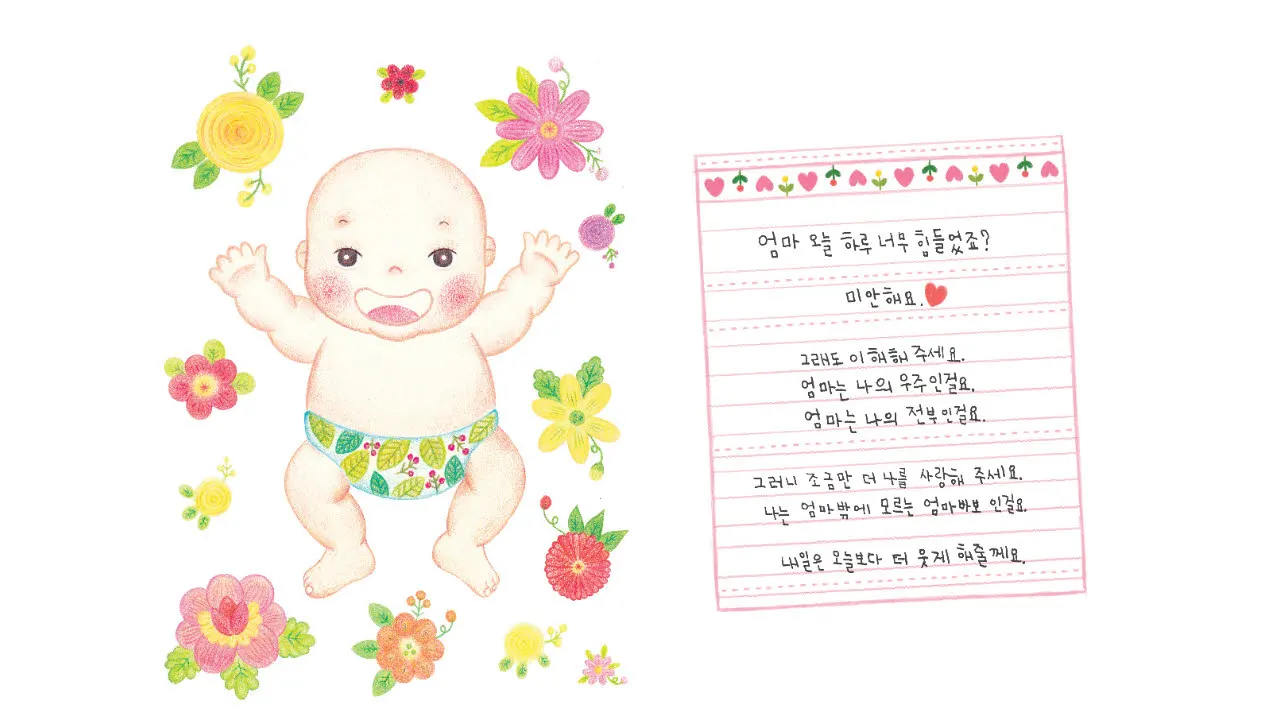 엄마 오늘 하루 너무 힘들었죠?
미안해요.
그래도 이해해 주세요.
엄마는 나의 우주인걸요.
엄마는 나의 전부인걸요.
그러니 조금만 더 나를 사랑해 주세요.
나는 엄마밖에 모르는 엄마바보 인걸요.
내일은 오늘보다 더 웃게 해줄께요.